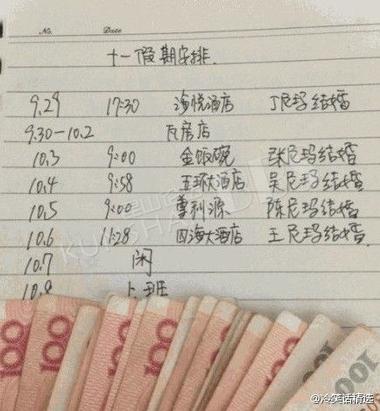 No.
Date
十一假期安排.
9.29 17:30 海悦酒店 丁尼玛结婚
9.30—10.2 瓦房店
10.3 9:00 金饭碗 张尼玛结婚
10.4 9:58 五环大酒店 吴尼玛结婚
10.5 9:00 喜利源 陈尼玛结婚
10.6 11:28 四海大酒店 王尼玛结婚
10.7 闲
10.8 上班
100
100
100
100
@冷笑话精选